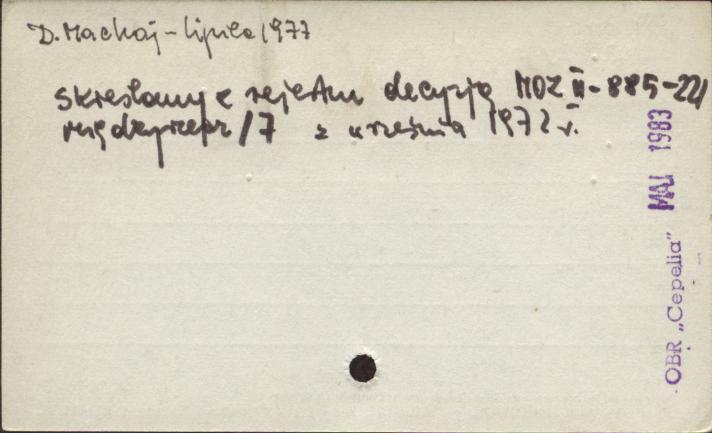 D. Machaj-Lipiec 1977
skreślony z rejestru decyzją MOZ II-885-22/
/7 z września 1972 r.
1983
OBR „Cepelia”